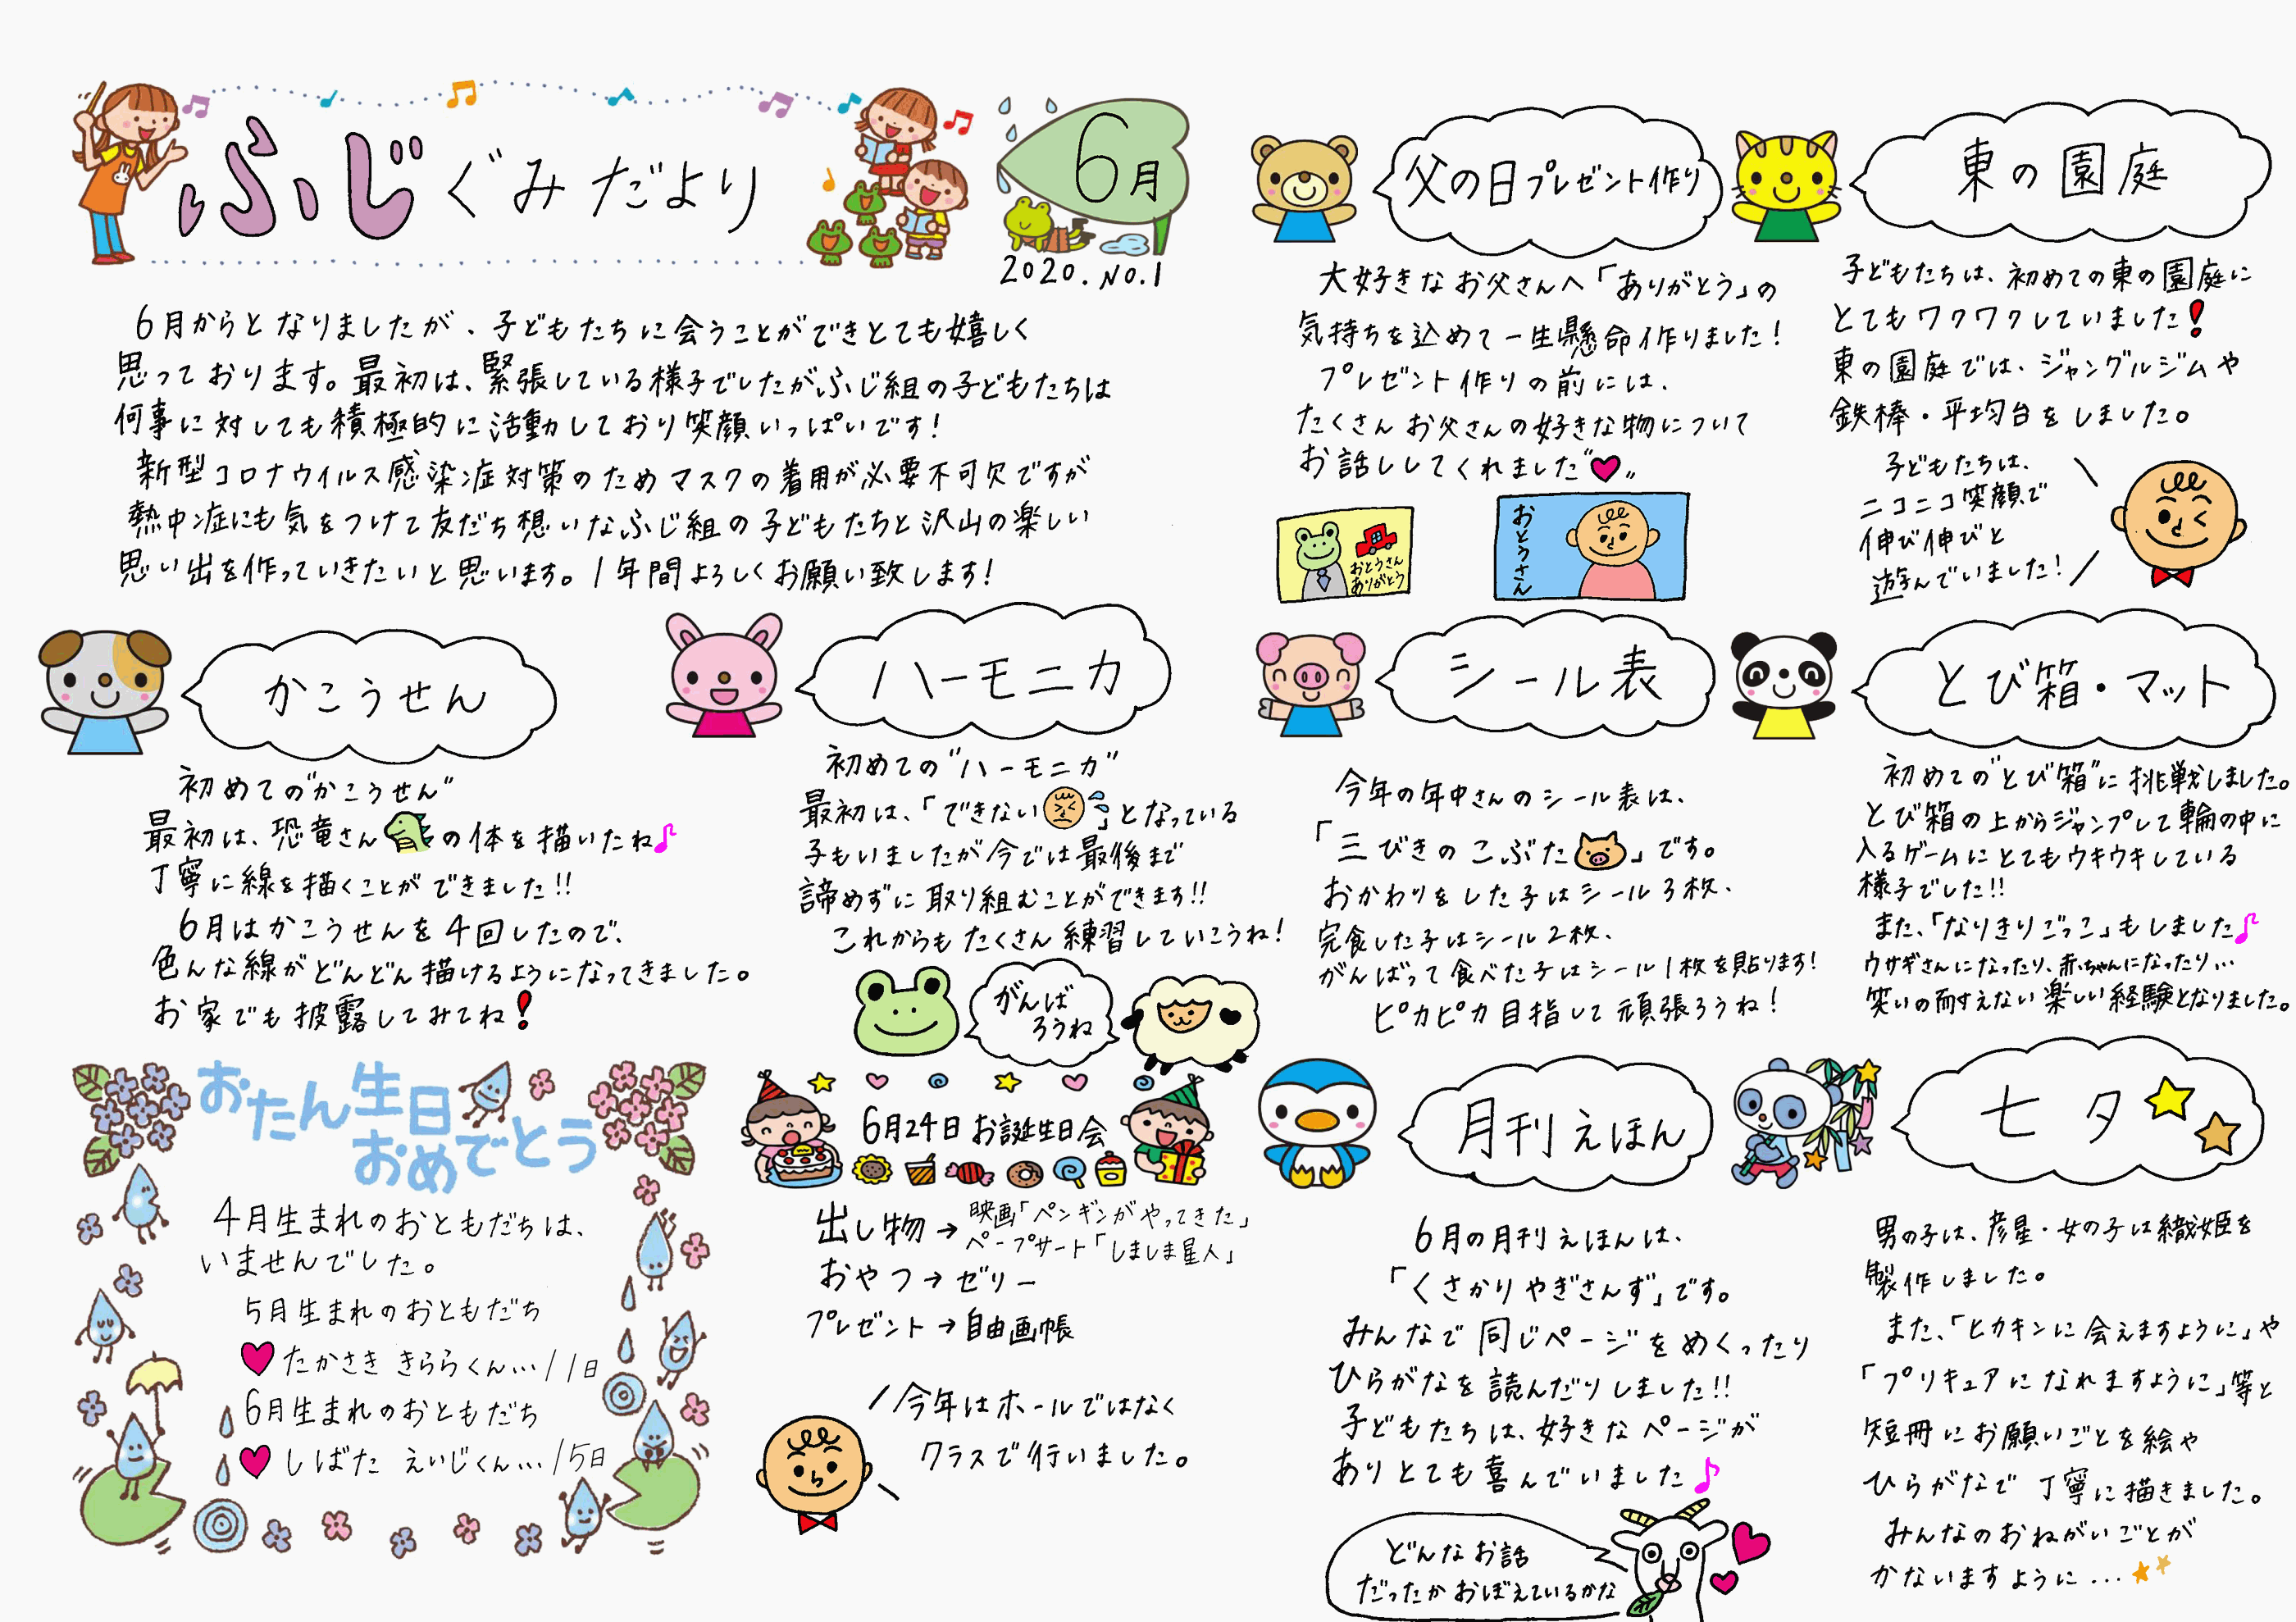 ふじぐみだより
6月
2020.NO.1
6月からとなりましたが、子どもたちに会うことができとても嬉しく
思っております。最初は、緊張している様子でしたがふじ組の子どもたちは
何事に対しても積極的に活動しており笑顔いっぱいです!
新型コロナウイルス感染症対策のためマスクの着用が必要不可欠ですが
熱中症にも気をつけて友だち想いなふじ組の子どもたちと沢山の楽しい
思い出を作っていきたいと思います。1年間よろしくお願い致します!
かこうせん
初めての"かこうせん"
最初は、恐竜さんの体を描いたね♪
丁寧に線を描くことができました!!
6月はかこうせんを4回したので、
色んな線がどんどん描けるようになってきました。
お家でも披露してみてね!
ハーモニカ
初めての"ハーモニカ"
最初は、「できない」となっている
子もいましたが今では最後まで
諦めずに取り組むことができます!!
これからもたくさん練習していこうね!
がんば
ろうね
おたん生日
おめでとう
4月生まれのおともだちは、
いませんでした。
5月生まれのおともだち
♥たかさき きららくん…11日
6月生まれのおともだち
♥しばた えいじくん…15日
6月24日お誕生日会
出し物→映画「ペンギンがやってきた」
ペープサート「しましま星人」
おやつ→ゼリー
プレゼント→自由画帳
今年はホールではなく
クラスで行いました。
父の日プレゼント作り
大好きなお父さんへ「ありがとう」の
気持ちを込めて一生懸命作りました!
プレゼント作りの前には、
たくさんお父さんの好きな物について
お話ししてくれました"♥"
おとうさん
ありがとう
おとうさん
東の園庭
子どもたちは、初めての東の園庭に
とてもワクワクしていました!
東の園庭では、ジャングルジムや
鉄棒・平均台をしました。
子どもたちは、
ニコニコ笑顔で
伸び伸びと
遊んでいました!
シール表
今年の年中さんのシール表は、
「三びきのこぶた」です。
おかわりをした子はシール3枚、
完食した子はシール2枚、
がんばって食べた子はシール1枚を貼ります!
ピカピカ目指して頑張ろうね!
とび箱・マット
初めての"とび箱"に挑戦しました。
とび箱の上からジャンプして輪の中に
入るゲームにとてもウキウキしている
様子でした!!
また、「なりきりごっこ」もしました♪
ウサギさんになったり、赤ちゃんになったり…
笑いの耐えない楽しい経験となりました。
月刊えほん
6月の月刊えほんは、
「くさかりやぎさんず」です。
みんなで同じページをめくったり
ひらがなを読んだりしました!!
子どもたちは、好きなページが
ありとても喜んでいました♪
どんなお話
だったかおぼえているかな
七夕
男の子は、彦星・女の子は織姫を
製作しました。
また、「ヒカキンに会えますように」や
「プリキュアになれますように」等と
短冊にお願いごとを絵や
ひらがなで丁寧に描きました。
みんなのおねがいごとが
かないますように...